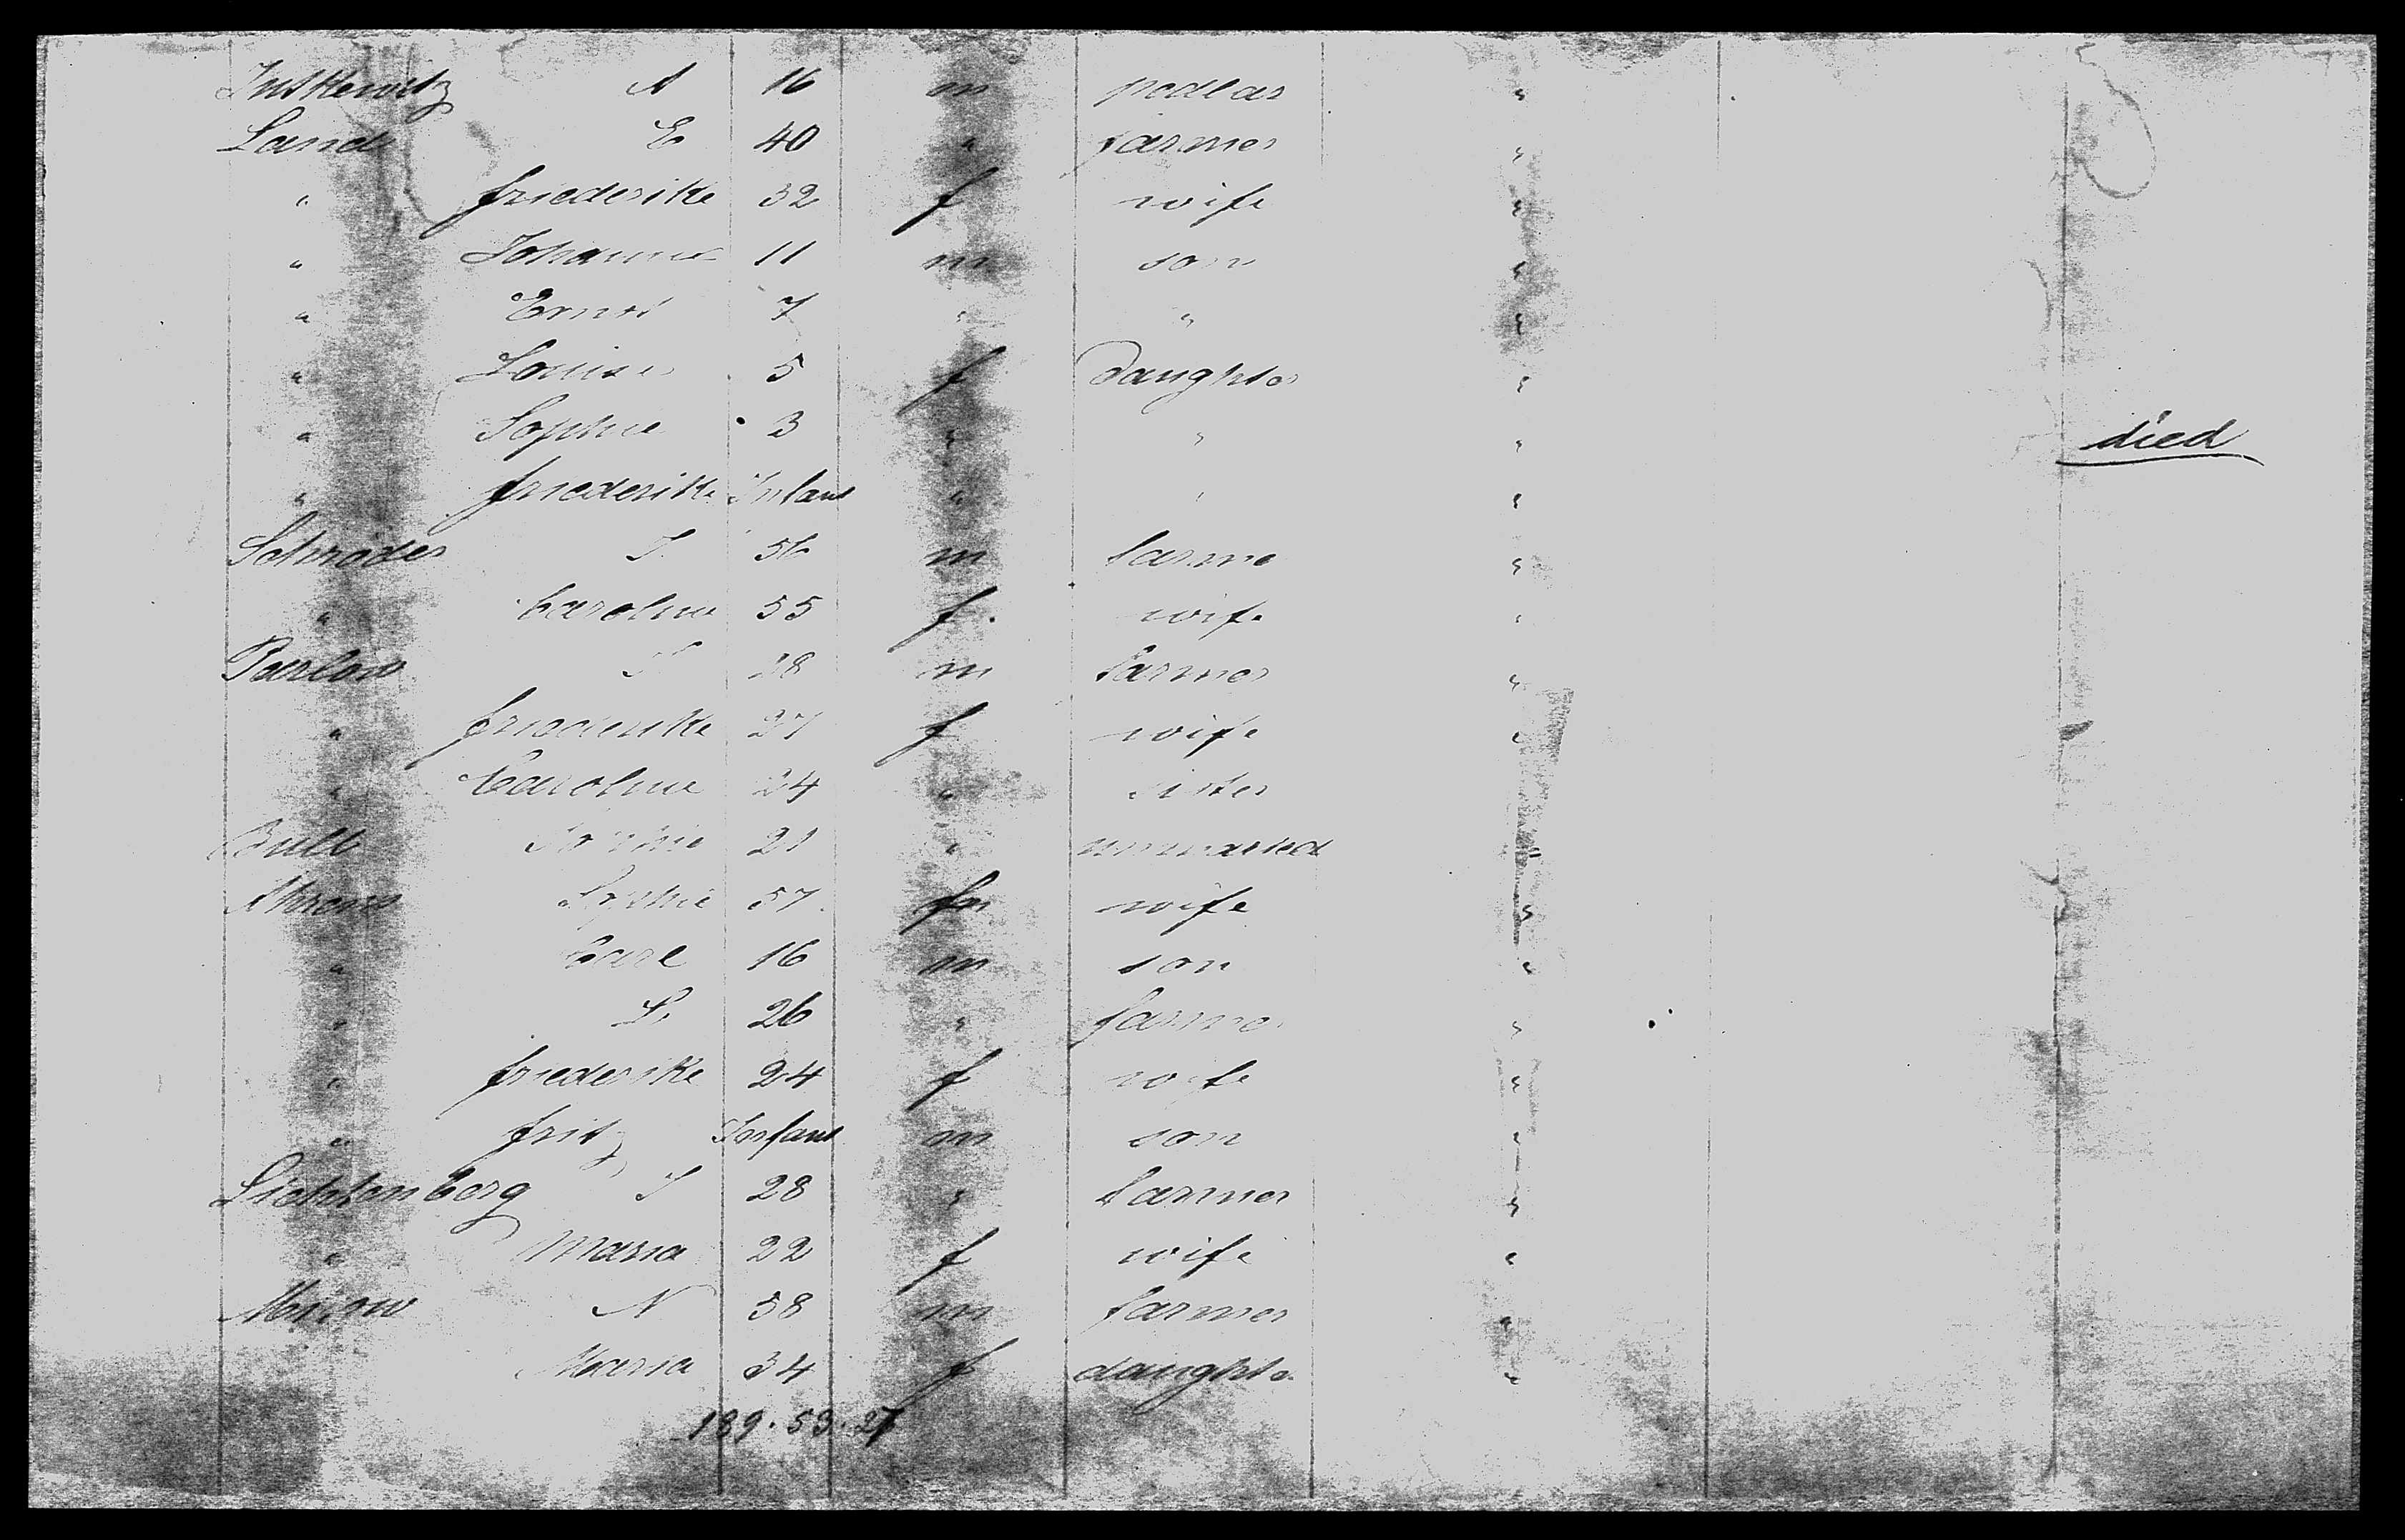 Jutkewitz A 16 m pedlar "
Land E 40 " farmer "
" friederike 32 f wife "
" Johann 11 m son "
" Ernst 7 " " "
" Louise 5 f daughter "
" Sophie 3 " " " died
" friederike Infant " " "
Schröder J. 56 m farmer "
" Caroline 55 f. wife "
Parlow J 28 m farmer "
" friederike 27 f wife "
" Caroline 24 " sister "
Bull Sophie 21 " unmarried "
Ahrens Sophie 57 fm wife "
" Carl 16 m son "
" L 26 " farmer "
" friederike 24 f wife "
" fritz Infant m son "
Lichtenberg J 28 " farmer "
" Maria 22 f wife "
N 58 m farmer "
Maria 34 f daughter "
189 . 53 . 27